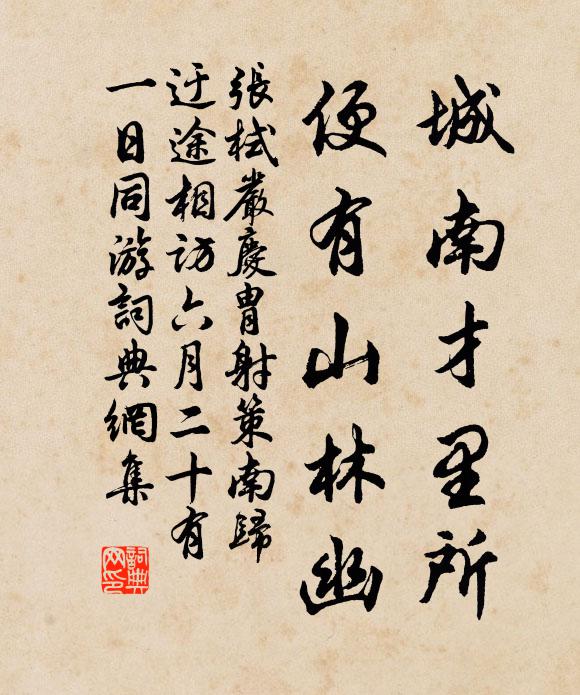 城南才里所
便有山林幽
張栻嚴慶冑射策南歸
迂途相訪六月二十有
一日同游詞典網集
詞典网印